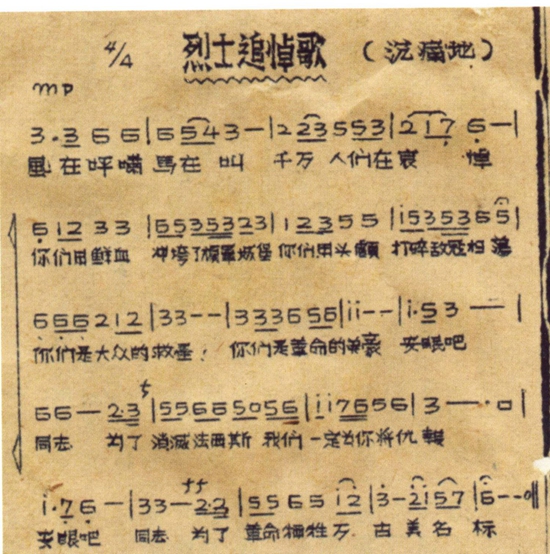 4/4 烈士追悼歌 (沉痛地)
mp
3·3 6 6|6 5 4 3 —|2 2 3 5 5 3|2 1 7 6 —|
風在呼嘯 馬在叫 千万人们在哀悼
6 1 2 3 3|6 5 3 5 3 2 3|1 2 3 5 5|i 5 3 5 3 6 5|
你们用鲜血 冲垮了 你们用头顱 打碎敌
6 6 6 2 1 2|3 3 — —|3 3 3 6 5 6|i i — —|i·5 3 — —|
你们是大众的救星! 你们是革命的英豪 安眠吧
6 6 — 2·3|5 5 6 6 5 0 5 6|i i 7 6 5 6|3 — — · 0|
同志 为了消滅法西斯 我们一定为你将仇報
i·7 6 —|3 3 — 2·3|5 5 6 5 i 2|3 — 2 i 5 7|6 — — 0‖
安眠吧 同志 为了革命犧牲万古美名标